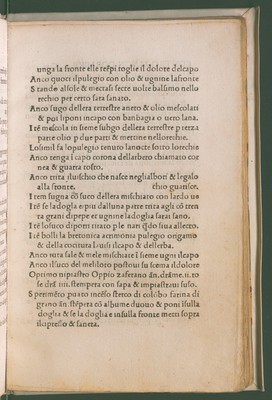 unga la fronte elle tẽpi toglie il dolore delcapo
Anco quoci ilpulegio con olio & ugnine lafronte
Stando alsole & mectasi secte uolte balsimo nello
rechio per certo sara sanato.
Anco sugo dellera terrestre aneto & olio mescolati
& poi siponi incapo con banbagia o uero lana.
Itẽ mescola in sieme subgo dellera terrestre p terza
parte olio p due parti & mettine nellorchie.
Losimil fa lopulegio tenuto lanocte sotto lorechio
Anco tenga ĩ capo corona dellarbero chiamato cor
nea & guarra tosto.
Anco trita iluischio che nasce neglialbori & legalo
alla fronte. chio guarisce.
Item sugna cõ suco dellera mischiato con lardo us
Itẽ se ladogla e piu dalluna parte trita agli cõ tren
ta grani dipepe et ugnine ladoglia sarai sano.
Itẽ losuco diporri tirato p le nari qdo siua allecto.
Itẽ bolli la bretonica acrimonia pulegio origamo
& della cocitura lauisi ilcapo & dellerba.
Anco ruta sale & mele mischiate ĩ sieme ugni ilcapo
Anco ilsuco del meliloro postoui su scema ildolore
Optimo nipiastro Oppio zaferano ãn. drãme .ii. ro
se drã. iiii. stempera con sapa & impiastraui suso.
Sperimẽto puato incẽso sterco di colõbo farina di
grano ãn. stẽpera cõ albume duouo & poni ĩsulla
doglia & se la doglia e insulla fronte metti sopra
ilcipresso & saneta.